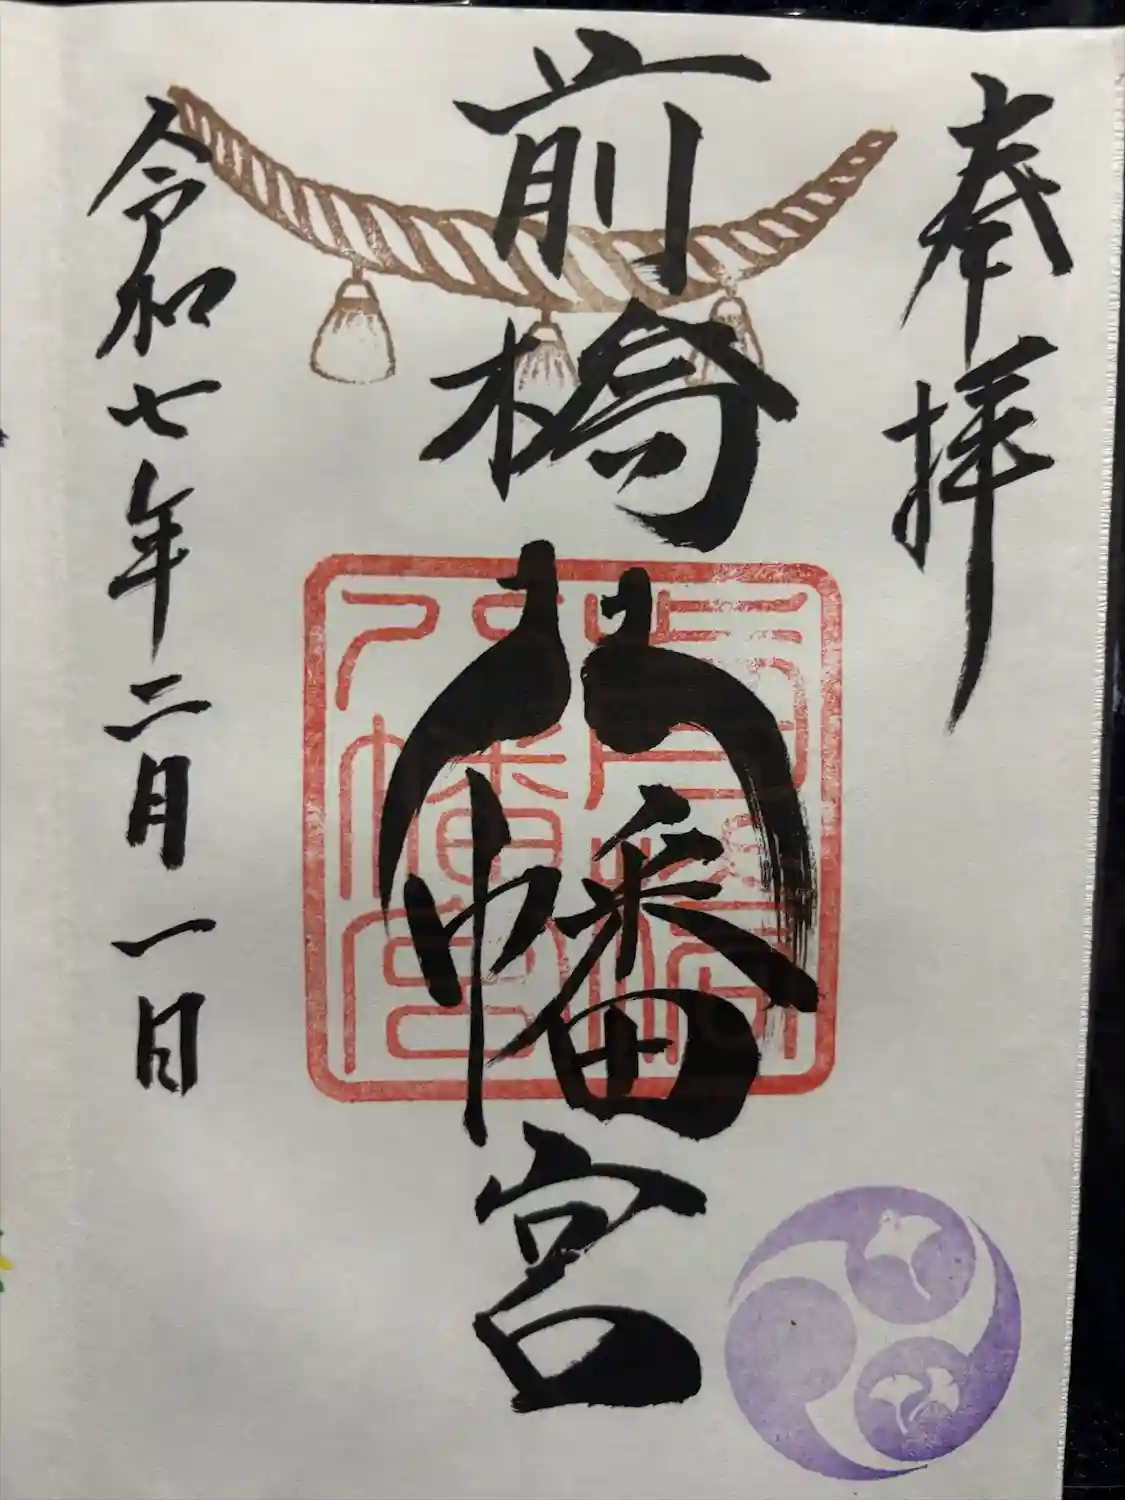 奉拝
前橋八幡宮
令和七年二月一日
前橋八幡宮